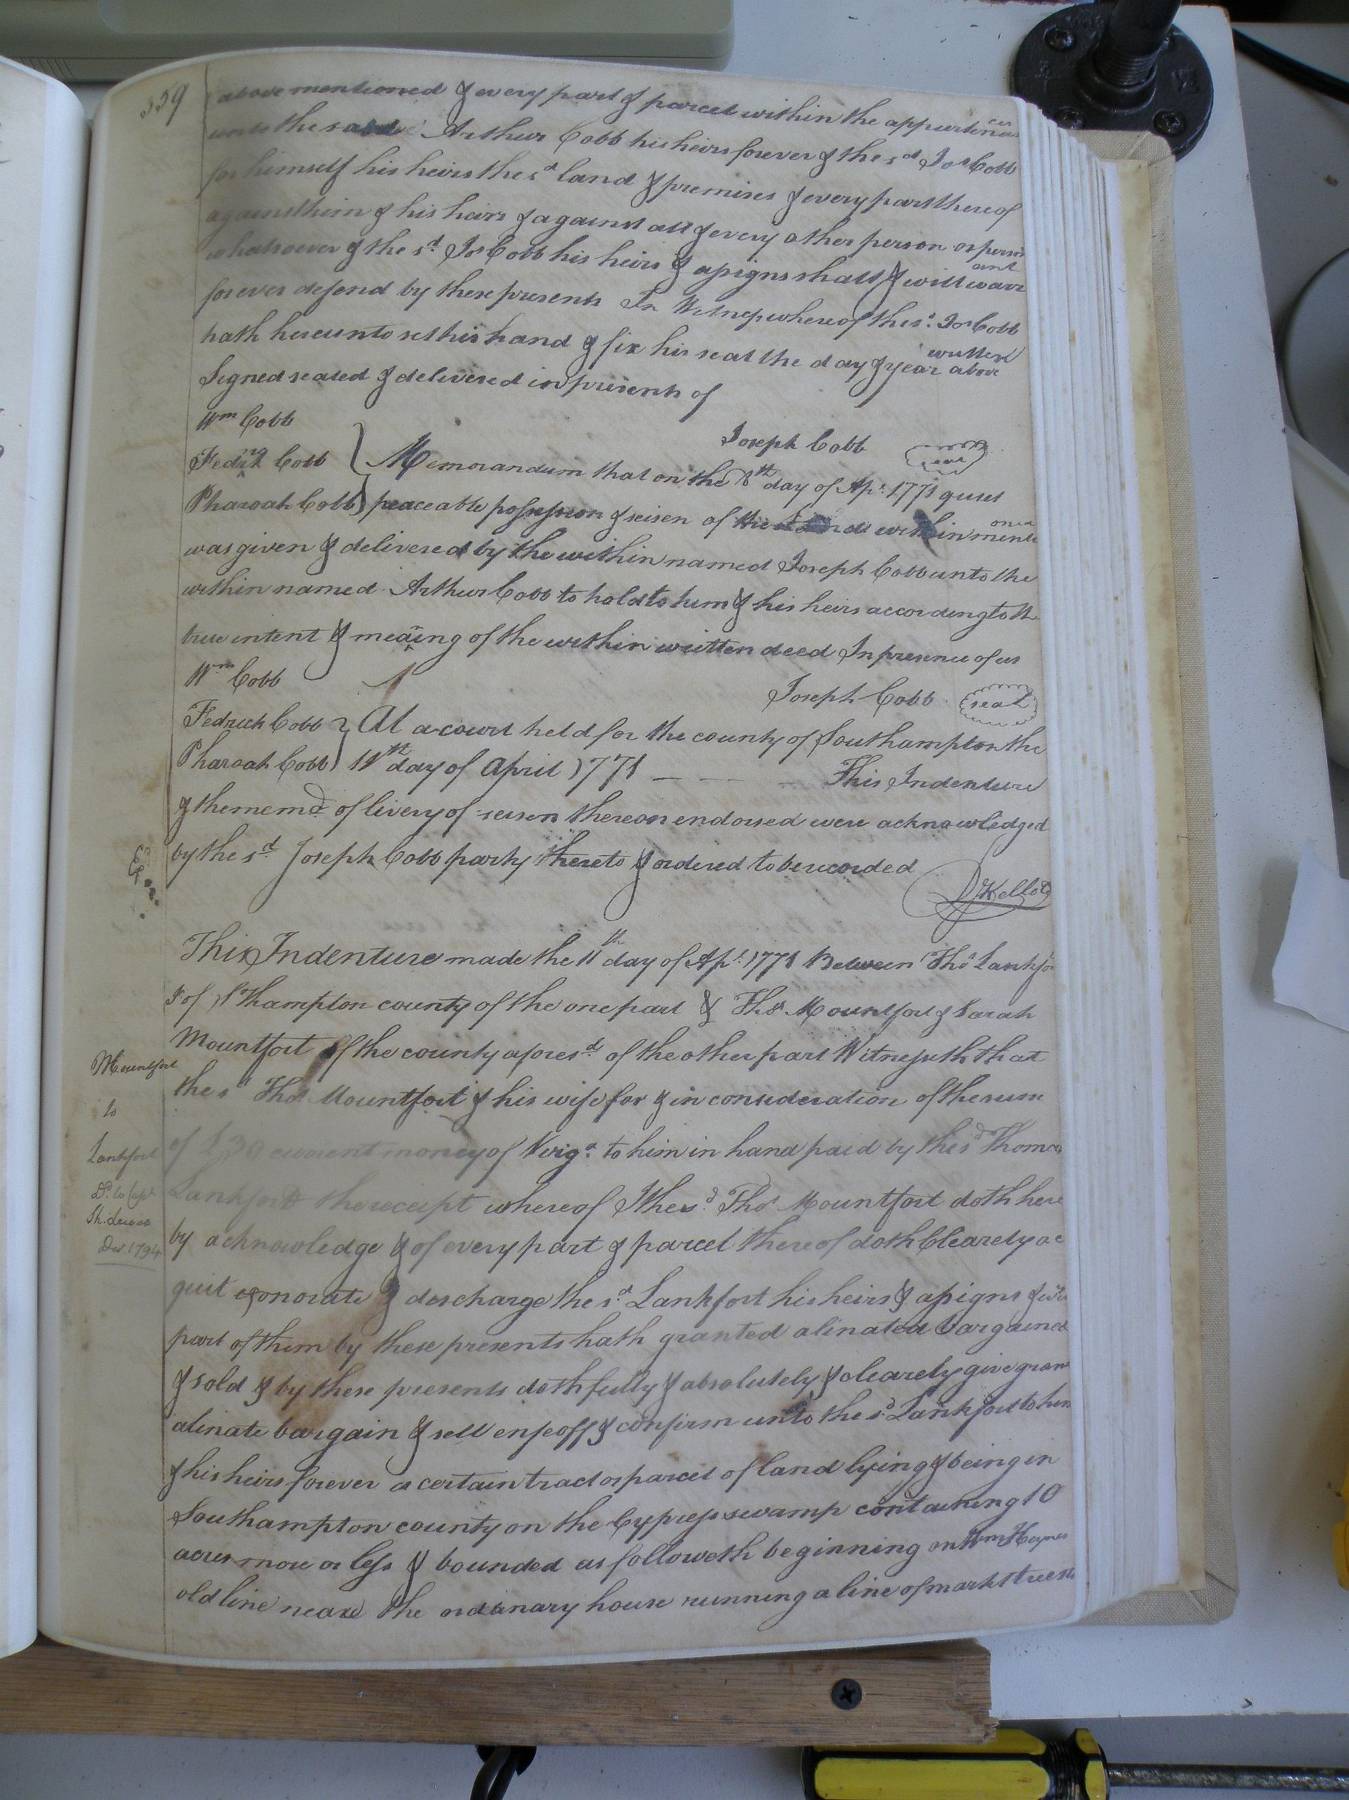 359
above mentioned & every part & parcel within the appurtenances
unto the said Arthur Cobb his heirs forever & the sd Jos Cobb
for himself his heirs the sd land & premises & every part thereof
against him & his heirs & against all & every other person or persons
whatsoever & the sd Jos Cobb his heirs & assigns shall & will warrant
forever defend by these presents In Witness whereof the sd Jos Cobb
hath hereunto set his hand & fix his seal the day & year above written
Signed sealed & delivered in presents of
Wm Cobb
Joseph Cobb seal
Fedrick Cobb } Memorandum that on the 8th day of Apl 1771 quiet
Pharoah Cobb } peaceable possession & seisen of the lands within mentioned
was given & delivered by the within named Joseph Cobb unto the
within named Arthur Cobb to hold to him & his heirs according to th
true intent & meaning of the within written deed In presence of us
Wm Cobb
Joseph Cobb seal
Fedrick Cobb } At a court held for the county of Southampton the
Pharoah Cobb } 11th day of April 1771 This Indenture
& the memd of livery of seisen thereon endorsed were acknowledged
by the sd Joseph Cobb party thereto & ordered to be recorded
Ex
This Indenture made the 11th day of Apl 1771 Between Thos Lankfor
of Shampton county of the one part & Thos Mountfort & Sarah
Mountfort of the county aforesd of the other part Witnesseth that
Mountfort
the sd Thos Mountfort & his wife for & in consideration of the sum
to
of £30 current money of Virga to him in hand paid by the sd Thomas
Lankfort
Lankfort the receipt whereof the sd Thos Mountfort doth here
Dd to Capt
by acknowledge & of every part & parcel thereof doth Clearely ac
Dec 1794
quit exonorate & descharge the sd Lankfort his heirs & assigns &
part of them by these presents hath granted alinated bargained
& sold & by these presents doth fully & absolutely & clearely give grant
alinate bargain & sell enfeoff & confirm unto the sd Lankfort to him
& his heirs forever a certain tract or parcel of land lying & being in
Southampton county on the Cypress swamp containing 10
acres more or less & bounded as followeth beginning on Wm
old line neare the ordanary house running a line of markt trees